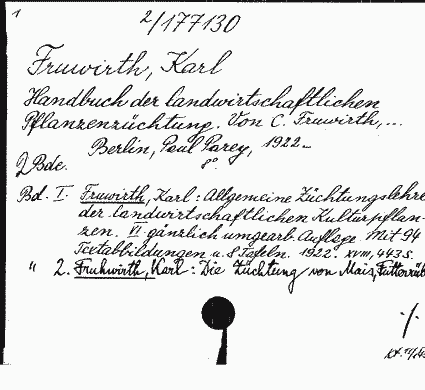 1
2/177130
Fruwirth, Karl
Handbuch der landwirtschaftlichen
Pflanzenzüchtung. Von C. Fruwirth, ...
Berlin, Paul Parey, 1922-
8°.
Bde.
Bd. I. Fruwirth, Karl: Allgemeine Züchtungslehre
der landwirtschaftlichen Kulturpflan-
zen. VI. gänzlich umgearb. Auflage. Mit 94
Textabbildungen u. 8 Tafeln. 1922. XVIII, 443 S.
" 2. Fruhwirth, Karl: Die Züchtung von Mais, Futterrüb
·/·